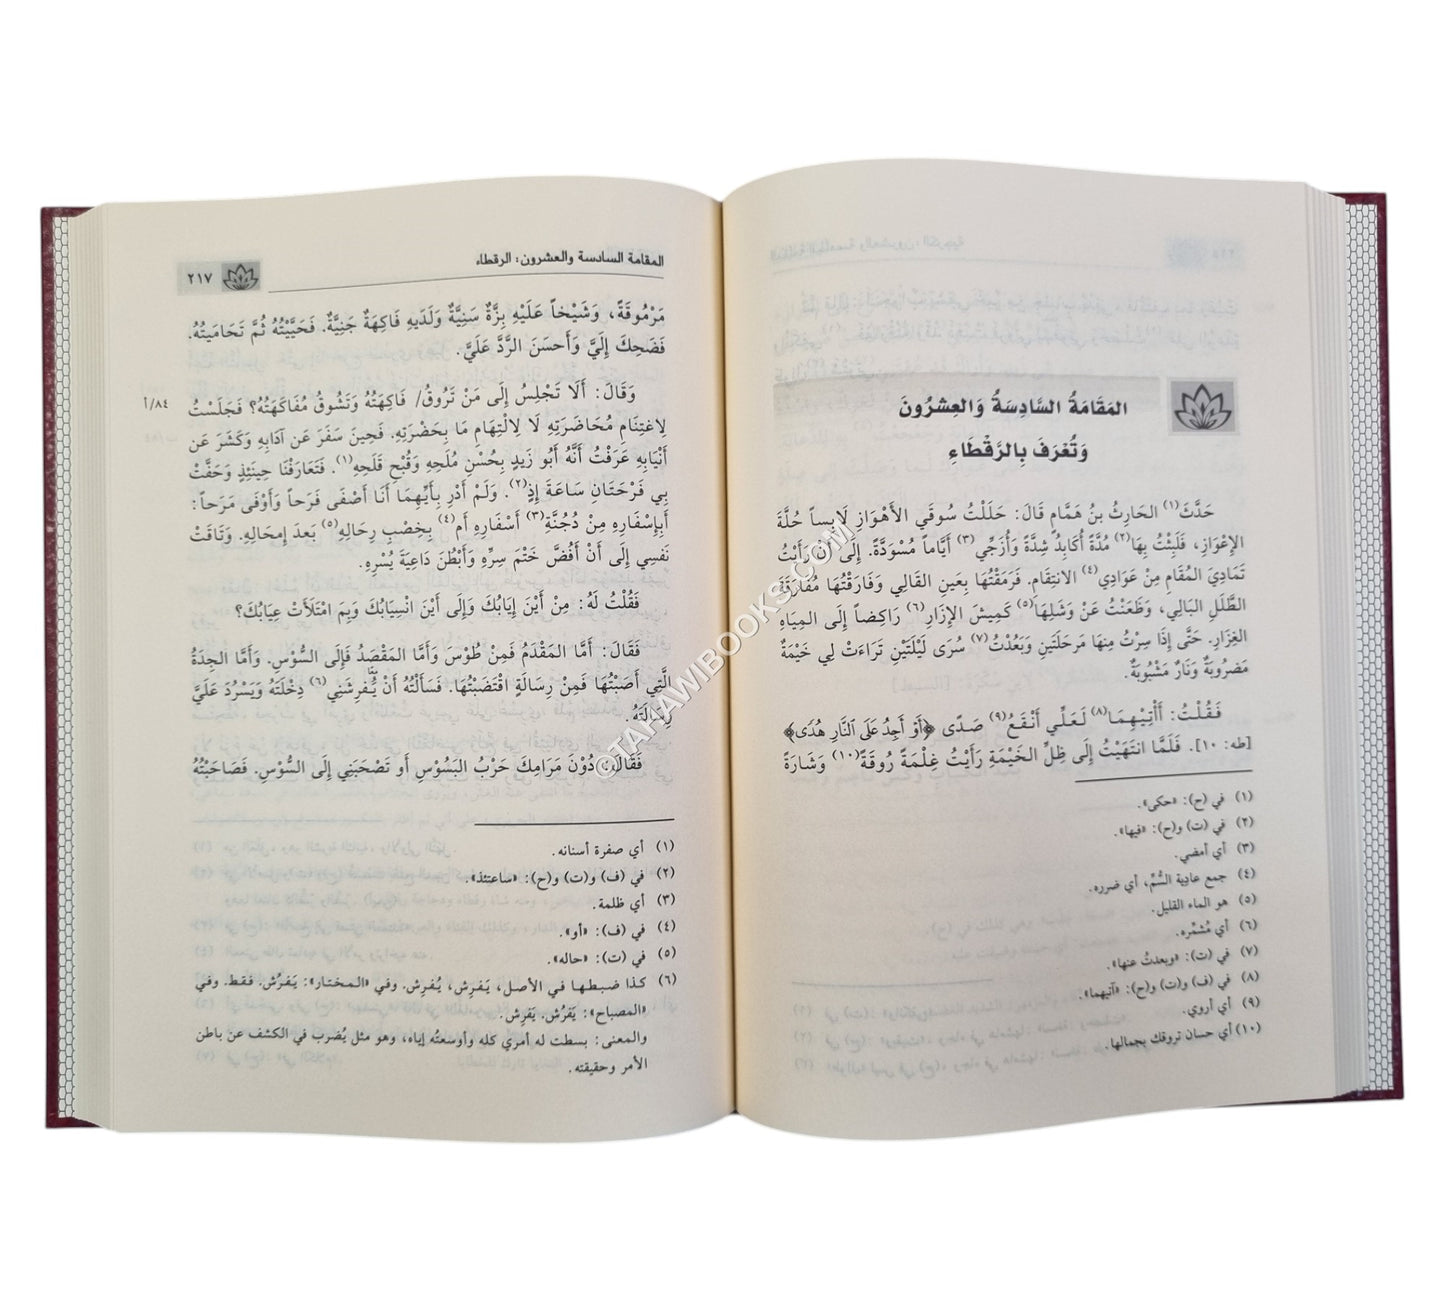 المَقَامَةُ السَّادِسَةُ وَالعِشرُونَ
وَتُعْرَفُ بِالرَّقْطَاءِ
حَدَّثَ(١) الحَارِثُ بنُ هَمَّامٍ قَالَ: حَلَلْتُ سُوقَي الأَهْوَازِ لَابِساً حُلَّةَ
الإِعْوَازِ، فَلَبِثْتُ بِهَا(٢) مُدَّةً أُكَابِدُ شِدَّةً وَأُزَجِّي(٣) أَيَّاماً مُسْوَدَّةً. إِلَى أَن رَأَيْتُ
تَمَادِيَ المُقَامِ مِنْ عَوَادِي(٤) الانتِقَامِ. فَرَمَقْتُهَا بِعَينِ القَالِي وَفَارَقْتُهَا مُفَارَقَةَ
الطَّلَلِ البَالِي، وَظَعَنْتُ عَنْ وَشَلِهَا(٥) كَمِيشَ الإِزَارِ(٦) رَاكِضاً إِلَى المِيَاهِ
الغِزَارِ. حَتَّى إِذَا سِرْتُ مِنهَا مَرحَلَتَينِ وَبَعُدْتُ(٧) سُرَى لَيْلَتَيْنِ تَرَاءَتْ لِي خَيْمَةٌ
مَضرُوبَةٌ وَنَارٌ مَشْبُوبَةٌ.
فَقُلْتُ: أَأْتِيهِمَا(٨) لَعَلِّي أَنْقَعُ(٩) صَدًى ﴿أَوْ أَجِدُ عَلَى النَّارِ هُدًى﴾
[طه: ١٠]. فَلَمَّا انتَهَيْتُ إِلَى ظِلِّ الخَيْمَةِ رَأَيْتُ غِلْمَةً رُوقَةً(١٠) وَشَارَةً
(١) في (ح): «حكى».
(٢) في (ت) و(ح): «فيها».
(٣) أي أمضي.
(٤) جمع عادية السُّمّ، أي ضرره.
(٥) هو الماء القليل.
(٦) أي مُشمِّره.
(٧) في (ت): «وبعدتُ عنها».
(٨) في (ف) و(ت) و(ح): «آتيهما».
(٩) أي أروي.
(١٠) أي حسان تروقك بجمالها.
المقامة السادسة والعشرون: الرقطاء
٢١٧
مَرْمُوقَةً، وَشَيْخاً عَلَيْهِ بِزَّةٌ سَنِيَّةٌ وَلَدَيهِ فَاكِهَةٌ جَنِيَّةٌ. فَحَيَّيْتُهُ ثُمَّ تَحَامَيتُهُ.
فَضَحِكَ إِلَيَّ وَأَحسَنَ الرَّدَّ عَلَيَّ.
وَقَالَ: أَلَا تَجْلِسُ إِلَى مَنْ تَرُوقُ/ فَاكِهَتُهُ وَتَشُوقُ مُفَاكَهَتُهُ؟ فَجَلَسْتُ
٨٤/أ
لِاغتِنَامِ مُحَاضَرَتِهِ لَا لِالْتِهَامِ مَا بِحَضْرَتِهِ. فَحِينَ سَفَرَ عَن آدَابِهِ وَكَشَرَ عَن
أَنْيَابِهِ عَرَفْتُ أَنَّهُ أَبُو زَيدٍ بِحُسْنِ مُلَحِهِ وَقُبْحِ قَلَحِهِ(١). فَتَعَارَفْنَا حِينَئِذٍ وَحَفَّتْ
بِي فَرْحَتَانِ سَاعَةَ إِذٍ(٢). وَلَمْ أَدْرِ بِأَيِّهِمَا أَنَا أَصْفَى فَرَحاً وَأَوْفَى مَرَحاً:
أَبِإِسْفَارِهِ مِنْ دُجُنَّةِ(٣) أَسْفَارِهِ أَم(٤) بِخِصْبِ رِحَالِهِ(٥) بَعدَ إِمحَالِهِ. وَتَاقَتْ
نَفسِي إِلَى أَنْ أَفُضَّ خَتْمَ سِرِّهِ وَأَبْطُنَ دَاعِيَةَ يُسْرِهِ.
فَقُلْتُ لَهُ: مِنْ أَينَ إِيَابُكَ وَإِلَى أَيْنَ انْسِيَابُكَ وَبِمَ امْتَلَأَتْ عِيَابُكَ؟
فَقَالَ: أَمَّا المَقْدَمُ فَمِنْ طُوْسَ وَأَمَّا المَقْصَدُ فَإِلَى السُّوْسِ. وَأَمَّا الجِدَةُ
الَّتِي أَصَبْتُهَا فَمِنْ رِسَالَةٍ اقْتَضَبْتُهَا. فَسَأَلْتُهُ أَنْ يُفرِشَنِي(٦) دِخْلَتَهُ وَيَسْرُدَ عَلَيَّ
رِسَالَتَهُ.
فَقَالَ: دُوْنَ مَرَامِكَ حَرْبُ البَسُوْسِ أَو تَصْحَبَنِي إِلَى السُّوْسِ. فَصَاحَبْتُهُ
(١) أي صفرة أسنانه.
(٢) في (ف) و(ت) و(ح): «ساعتئذ».
(٣) أي ظلمة.
(٤) في (ف): «أو».
(٥) في (ت): «حاله».
(٦) كذا ضبطها في الأصل، يَفرِش، يُفرِش. وفي «المختار»: يَفرُش. فقط. وفي
«المصباح»: يَفرُش. يَفرِش.
والمعنى: بسطت له أمري كله وأوسعتُه إياه، وهو مثل يُضرب في الكشف عن باطن
الأمر وحقيقته.
©TAHAWIBOOKS.COM